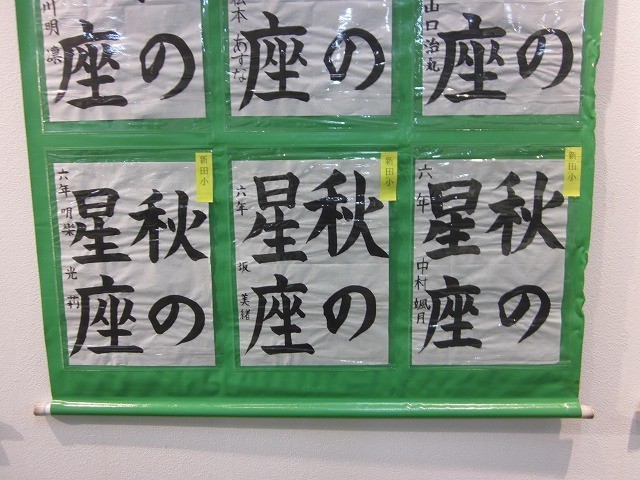 の
座
山口治丸
の
座
松本あずな
の
座
川明凛
新田小
秋の
星座
六年
中村颯月
新田小
秋の
星座
六年
坂美緒
新田小
秋の
星座
六年
光莉